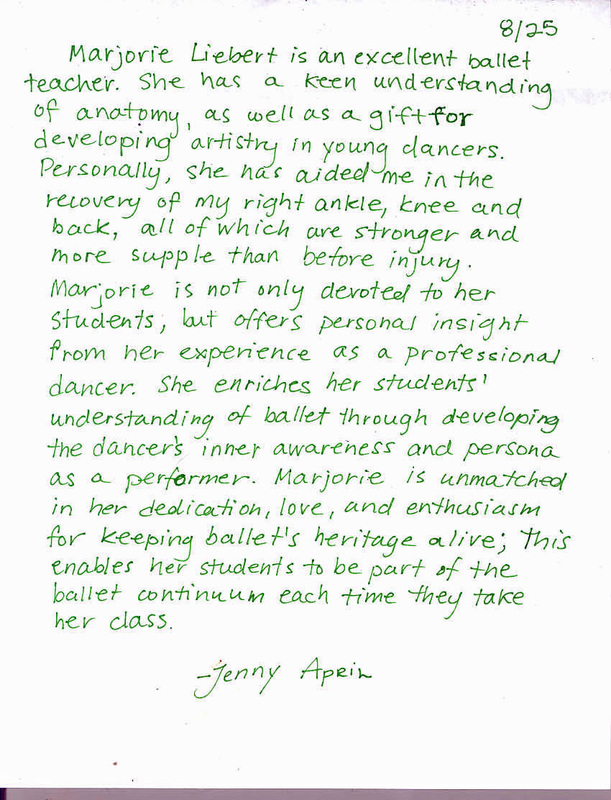 8/25
Marjorie Liebert is an excellent ballet
teacher. She has a keen understanding
of anatomy, as well as a gift for
developing artistry in young dancers.
Personally, she has aided me in the
recovery of my right ankle, knee and
back, all of which are stronger and
more supple than before injury.
Marjorie is not only devoted to her
students, but offers personal insight
from her experience as a professional
dancer. She enriches her students'
understanding of ballet through developing
the dancer's inner awareness and persona
as a performer. Marjorie is unmatched
in her dedication, love, and enthusiasm
for keeping ballet's heritage alive; this
enables her students to be part of the
ballet continuum each time they take
her class.
-Jenny April